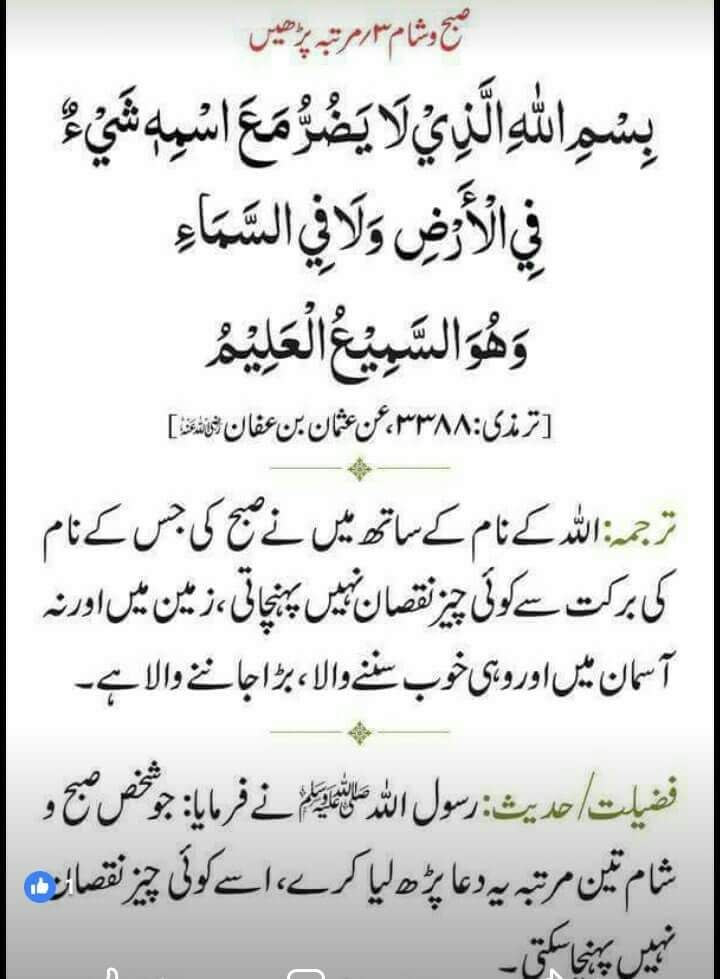 صبح و شام ۳؍مرتبہ پڑھیں
بِسْمِ اللهِ الَّذِيْ لَا يَضُرُّ مَعَ اسْمِهٖ شَيْءٌ
فِي الْأَرْضِ وَلَا فِي السَّمَاءِ
وَهُوَ السَّمِيْعُ الْعَلِيْمُ
[ترمذی:۳۳۸۸، عن عثمان بن عفان رضی اللہ عنہ]
ترجمہ: اللہ کے نام کے ساتھ میں نے صبح کی جس کے نام
کی برکت سے کوئی چیز نقصان نہیں پہنچاتی، زمین میں اور نہ
آسمان میں اور وہی خوب سننے والا، بڑا جاننے والا ہے۔
فضیلت/حدیث: رسول اللہ ﷺ نے فرمایا: جو شخص صبح و
شام تین مرتبہ یہ دعا پڑھ لیا کرے، اسے کوئی چیز نقصان
نہیں پہنچا سکتی۔
1